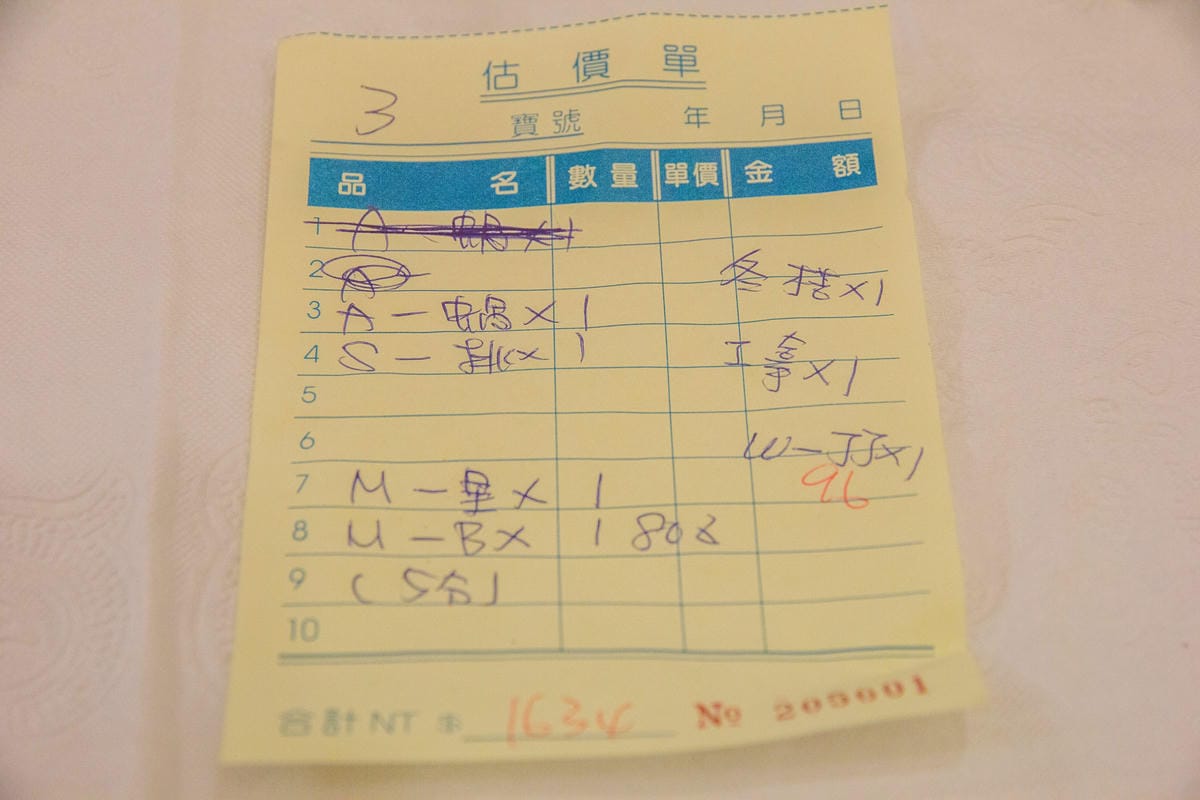 估 價 單
3
寶號 年 月 日
品 名 數量 單價 金 額
1
2 冬 ×1
3 A - 蝸 × 1
4 S - 排 × 1 工 ×1
5
6 W - 孖 ×1
7 M - 里 × 1 96
8 M - B × 1 80
9 (5分)
10
合計 NT $ 1634 № 209001